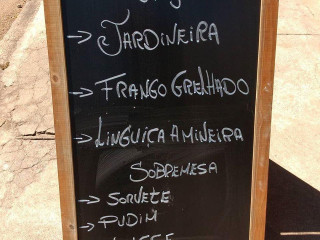 → JARDINEIRA
→ FRANGO GRELHADO
→ LINGUIÇA A MINEIRA
SOBREMESA
→ SORVETE
→ PUDIM